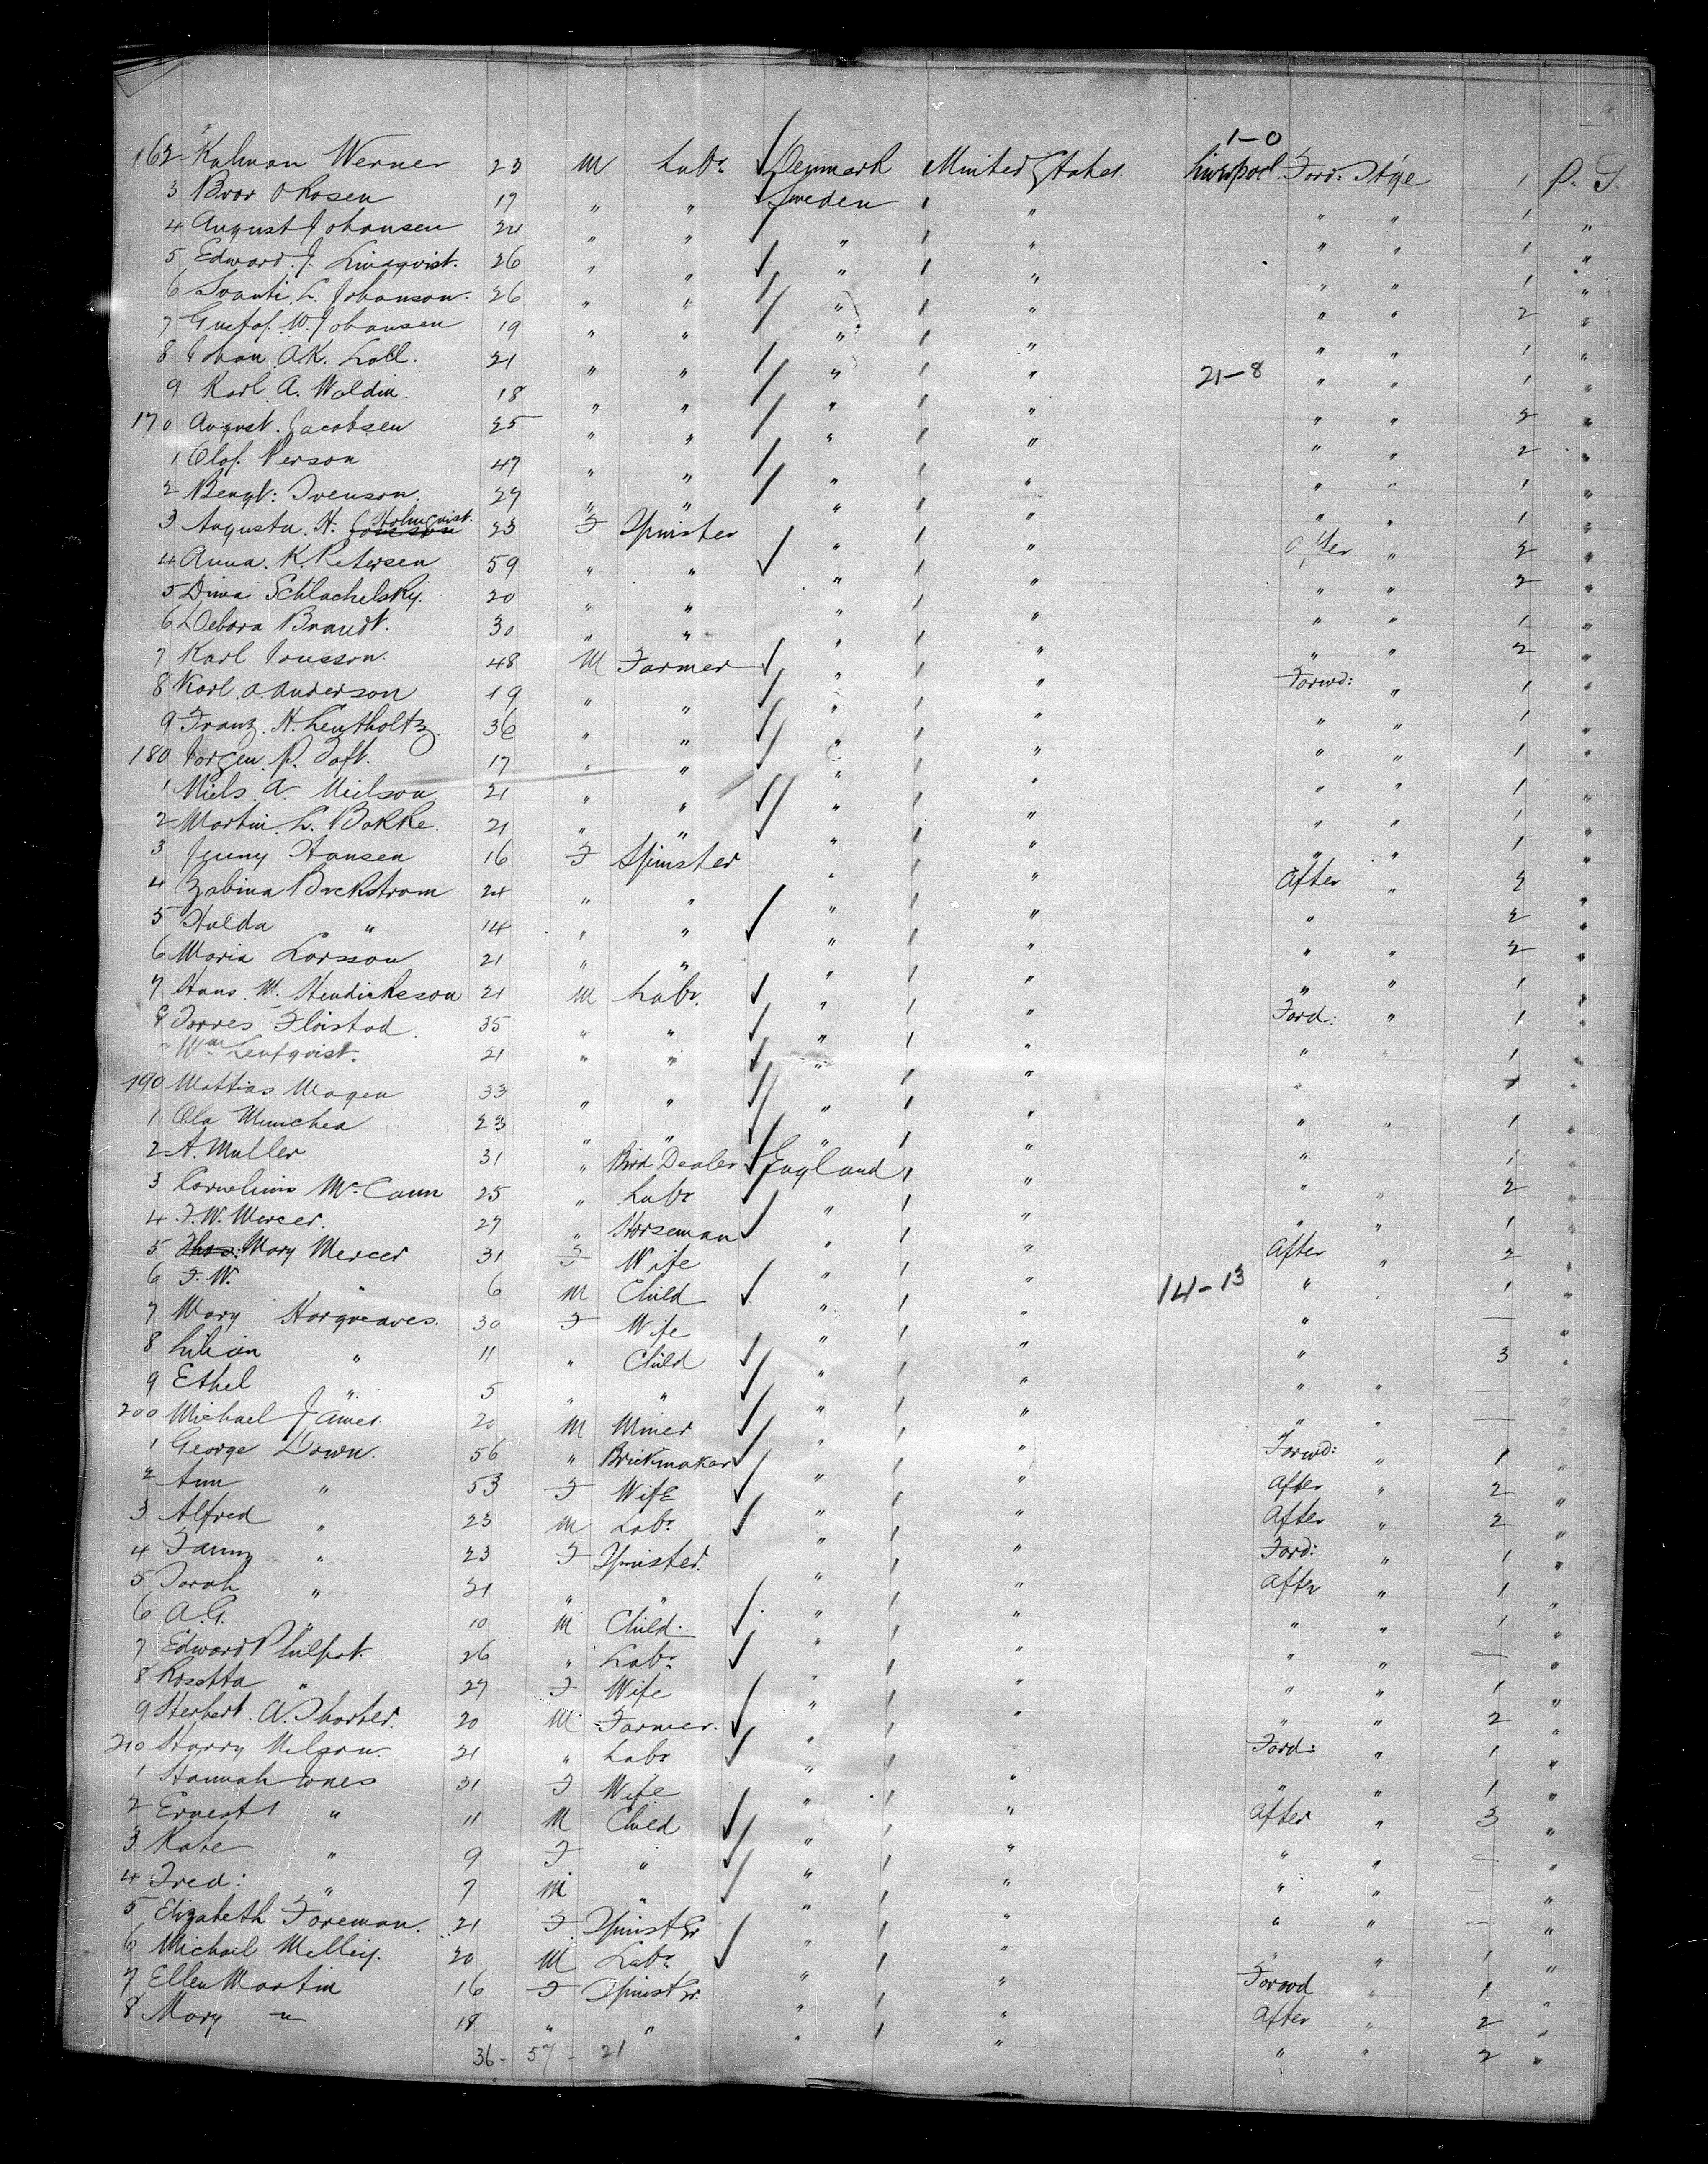 1-0
162 Kalman Werner 23 M Labr Denmark United States. Liverpool. Ford: Stge 1 P. S.
3 Bror O Rosen 17 " " Sweden 1 " " " 1 "
4 August Johansen 24 " " " 1 " " " 1 "
5 Edward. J. Lindqvist. 26 " " " 1 " " " 1 "
6 Svanti. L. Johanson. 26 " " " 1 " " " 2 "
7 Gustaf. W. Johansen 19 " " " 1 " " " 1 "
8 Johan A.K. Lall. 21 " " " 1 " 21-8 " " 1 "
9 Karl. A. Waldin. 18 " " " 1 " " " 2 "
170 August. Jacobsen 25 " " " 1 " " " 2 "
1 Olof. Person 47 " " " 1 " " " 1 "
2 Bengt: Svenson. 27 " " " 1 " " " 1 "
3 Augusta. H. Holmqvist. 23 F Spinster " 1 " After " 2 "
4 Anna. K. Petersen 59 " " " 1 " " " 2 "
5 Dina Schlachelsky. 20 " " " 1 " " " 1 "
6 Debora Brandt. 30 " " " 1 " " " 2 "
7 Karl Jonsson. 48 M Farmer " 1 " Forwd: " 1 "
8 Karl. A. Anderson 19 " " " 1 " " " 1 "
9 Franz. H. Leutholtz. 36 " " " 1 " " " 1 "
180 Jorgen. P. Toft. 17 " " " 1 " " " 1 "
1 Niels. A. Neilson 21 " " " 1 " " " 1 "
2 Martin. L. Bakke. 21 " " " 1 " " " 1 "
3 Jenny Hansen 16 F Spinster " 1 " After " 2 "
4 Zabina Backstrom 24 " " " 1 " " 2 "
5 Hulda " 14 " " " 1 " " " 2 "
6 Maria Larsson 21 " " " 1 " " " 1 "
7 Hans. M. Hendickeson 21 M Labr. " 1 " Ford: " 1 "
8 Torres Floistad. 35 " " " 1 " " " 1 "
" Wm Lenfqvist. 21 " " " 1 " " 1 "
190 Mattias Magea 33 " " " 1 " " " 1 "
1 Ola Munchea 23 " " " 1 " " 1 "
2 A. Muller 31 " Bird Dealer England 1 " " " 2 "
3 Cornelius McCann 25 " Labr " 1 " " " 1 "
4 F. W. Mercer. 27 " Horseman " 1 " After " 2 "
5 Thos: Mary Mercer 31 F Wife " 1 " " 1 "
6 F. W. " 6 M Child " 1 " 14-13 " — "
7 Mary Hargreaves. 30 F Wife " 1 " " 3 "
8 Lilian " 11 " Child " 1 " " " — "
9 Ethel " 5 " " " 1 " " " — "
200 Michael James. 20 M Miner " 1 " Forwd: " 1 "
1 George Down. 56 " Brickmaker " 1 " After " 2 "
2 Ann " 53 F Wife " 1 " After " 2 "
3 Alfred " 23 M Labr. " 1 " Ford: " 1 "
4 Fanny " 23 F Spinster. " 1 " After " 1 "
5 Sarah " 21 " " " 1 " " " 1 "
6 A. G. " 10 M Child. " 1 " " " — "
7 Edward Philpot. 26 " Labr. " 1 " " " 1 "
8 Rosetta " 27 F Wife " 1 " " " 2 "
9 Herbert. A. Shorter. 20 M Farmer. " 1 " Ford: " 1 "
210 Harry Nelson. 21 " Labr " 1 " " " 1 "
1 Hannah Jones 31 F Wife " 1 " After " 3 "
2 Ernest " 11 M Child " 1 " " " — "
3 Kate " 9 F " " 1 " " " — "
4 Fred: " 7 M " " 1 " " " — "
5 Elizabeth Foreman. 21 F Spinster " 1 " " " 1 "
6 Michael Melley. 20 M Labr. " 1 " Forwd " 1 "
7 Ellen Martin 16 F Spinster. " 1 " After " 2 "
8 Mary " 18 " " " 1 " " " 2 "
36- 57- 21